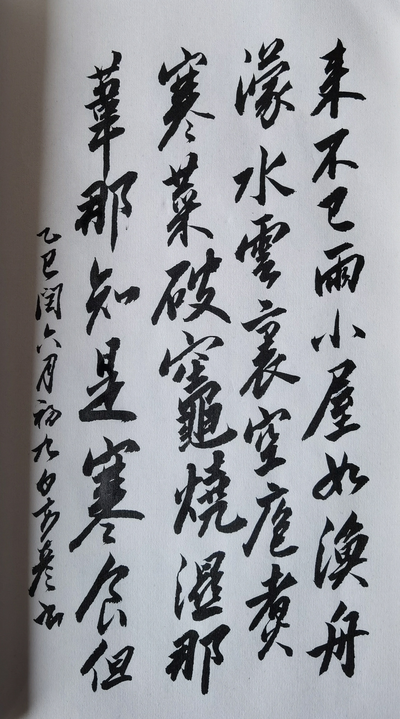 来不已雨小屋如漁舟
濛水雲裏空庖煮
寒菜破竈燒濕那
葦那知是寒食但
乙巳閏六月初九白